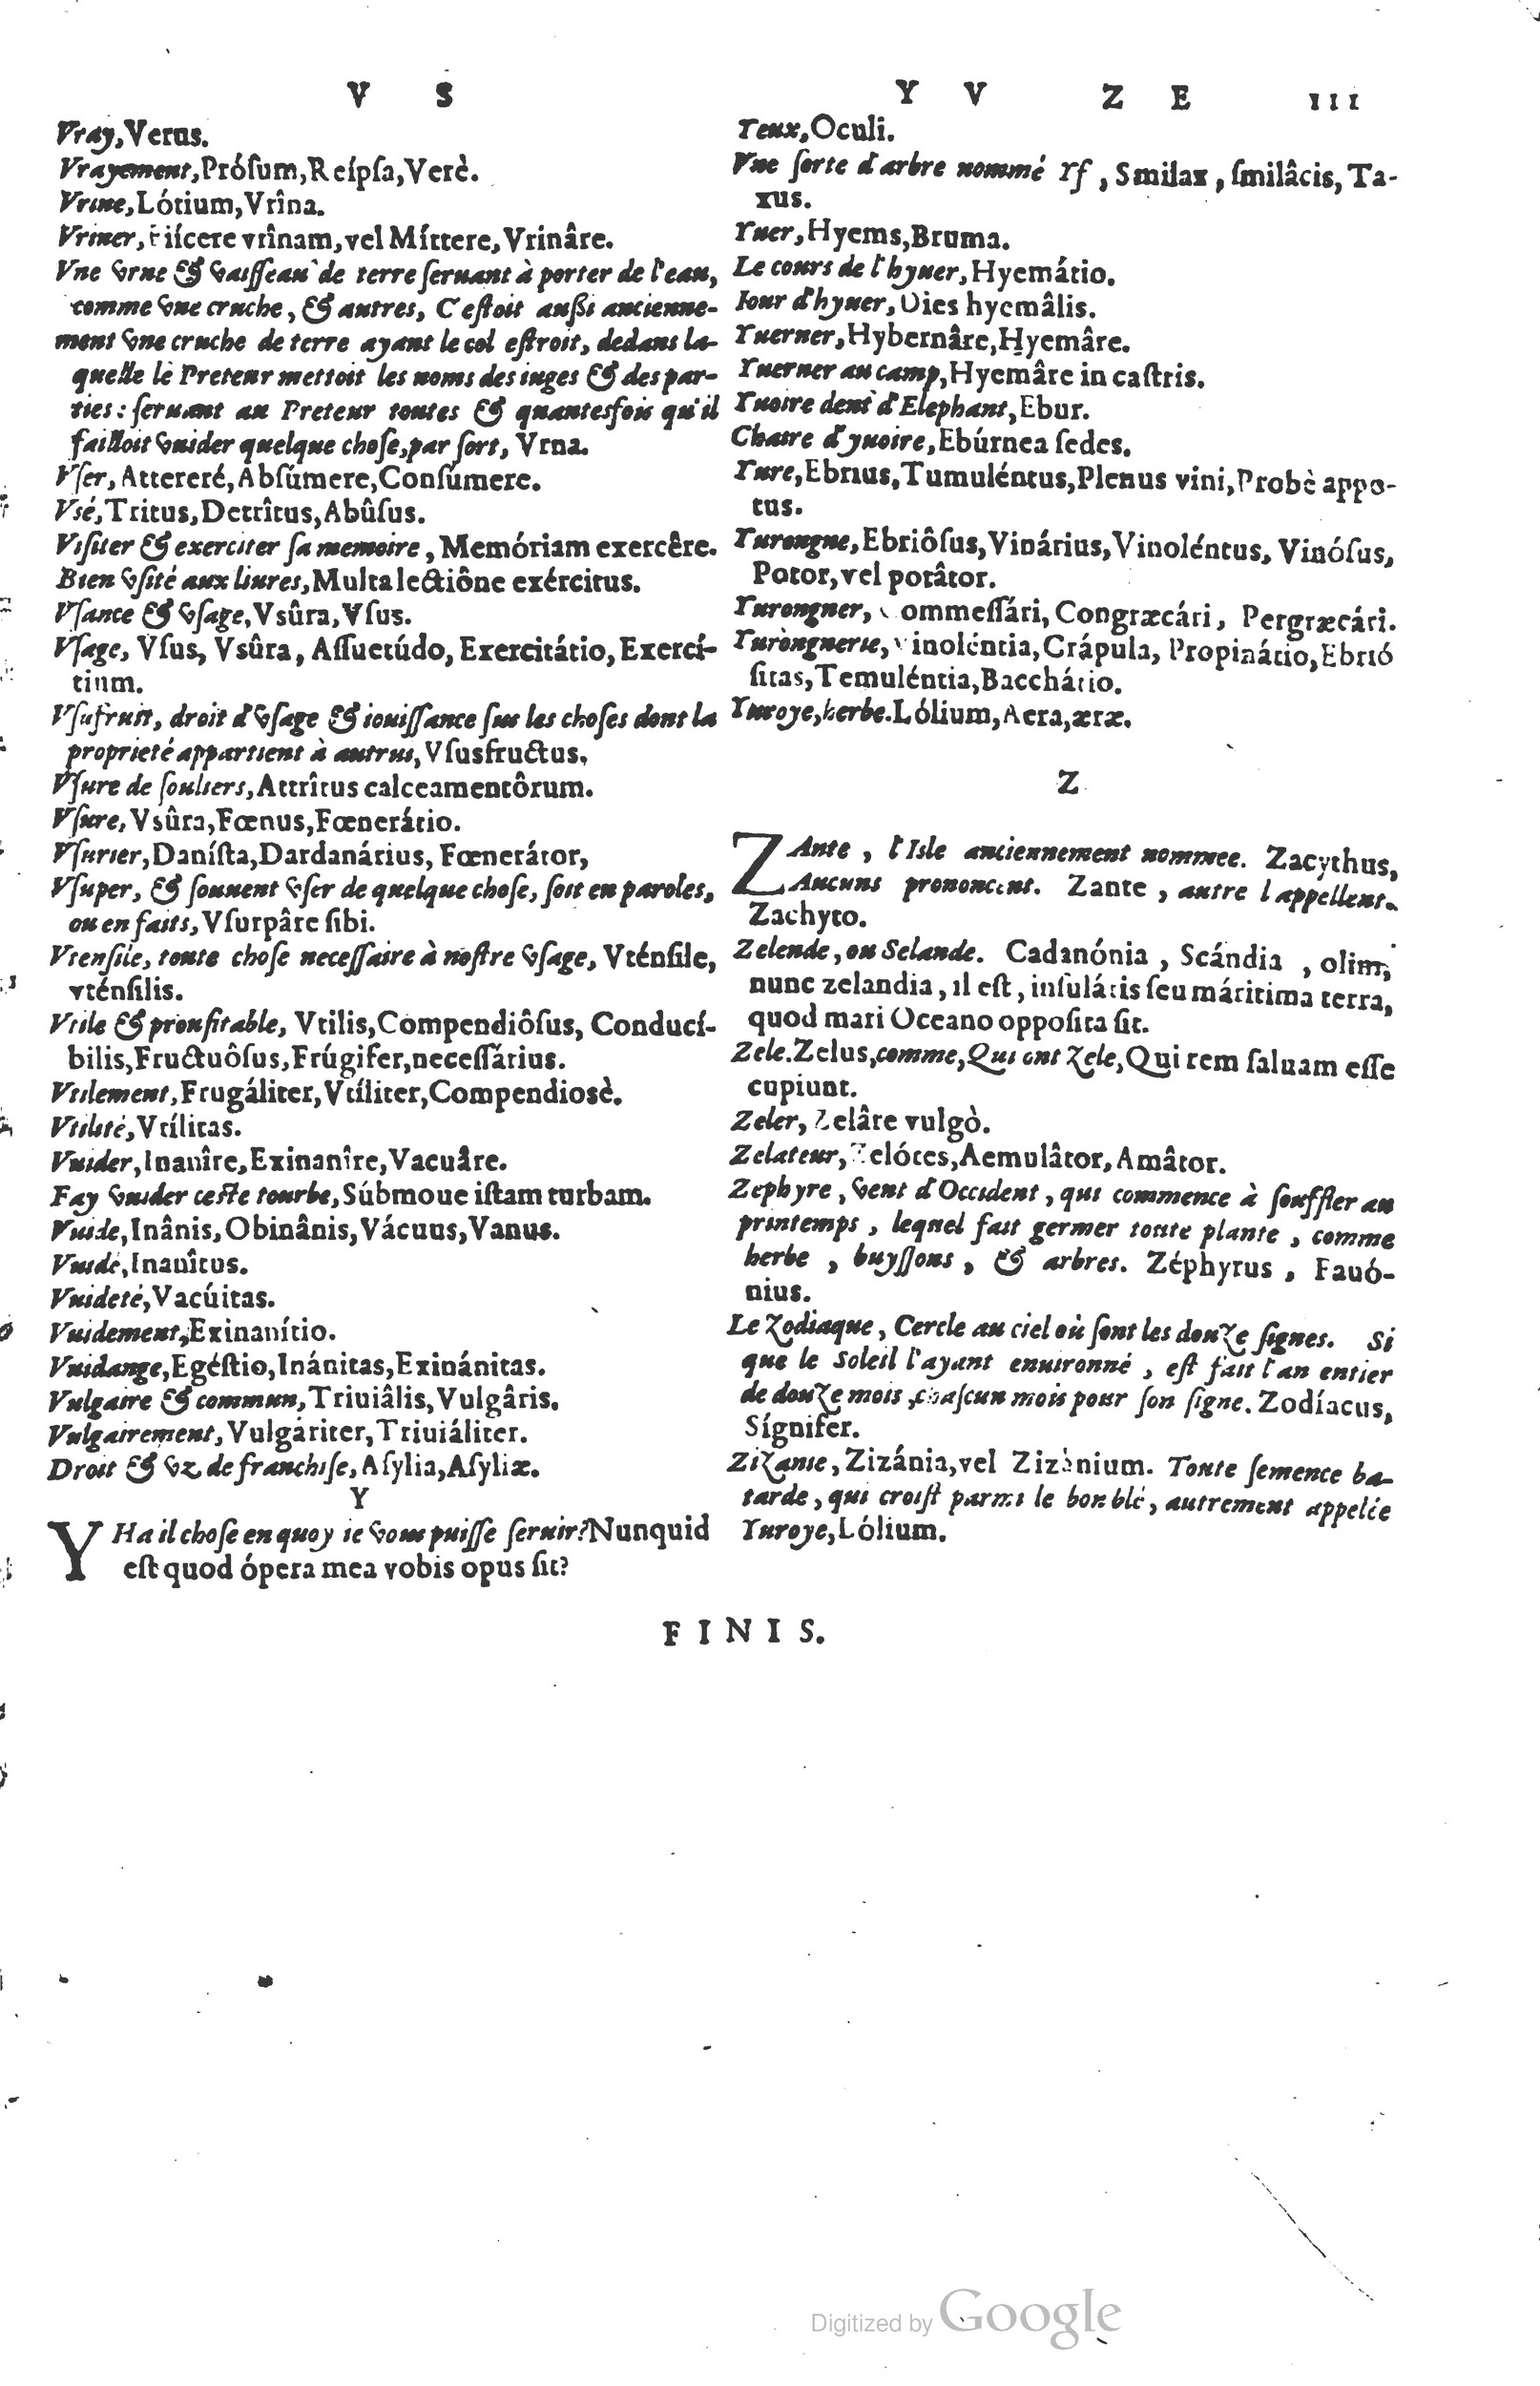 V S
Vray, Verus.
Vrayement, Próſum, Reípſa, Verè.
Vrine, Lótium, Vrîna.
Vriner, iícere vrînam, vel Míttere, Vrinâre.
Vne vrne & vaiſſeau de terre ſeruant à porter de l'eau,
comme vne cruche, & autres, C'eſtoit auſsi ancienne-
ment vne cruche de terre ayant le col eſtroit, dedans la-
quelle le Preteur mettoit les noms des iuges & des par-
ties: ſeruant au Preteur toutes & quantesfois qu'il
failloit vuider quelque choſe, par ſort, Vrna.
Vſer, Attereré, Abſúmere, Conſúmere.
Vſé, Tritus, Detrîtus, Abûſus.
Viſiter & exerciter ſa memoire, Memóriam exercêre.
Bien vſité aux liures, Multa lectiône exércitus.
Vſance & vſage, Vsûra, Vſus.
Vſage, Vſus, Vsûra, Aſſuetúdo, Exercitátio, Exercí-
tium.
Vſufruit, droit d'vſage & iouiſſance ſus les choſes dont la
proprieté appartient à autruy, Vſusfructus,
Vſure de ſouliers, Attrîtus calceamentôrum.
Vſure, Vsûra, Fœnus, Fœnerátio.
Vſurier, Daníſta, Dardanárius, Fœnerátor,
Vſuper, & ſouuent vſer de quelque choſe, ſoit en paroles,
ou en faits, Vſurpâre ſibi.
Vtenſile, toute choſe neceſſaire à noſtre vſage, Vténſile,
vténſilis.
Vtile & proufitable, Vtilis, Compendiôſus, Conducí-
bilis, Fructuôſus, Frúgifer, neceſſárius.
Vtilement, Frugáliter, Vtíliter, Compendiosè.
Vtilité, Vtílitas.
Vuider, Inanîre, Exinanîre, Vacuâre.
Fay vuider ceſte tourbe, Súbmoue iſtam turbam.
Vuide, Inânis, Obinânis, Vácuus, Vanus.
Vuidé, Inanîtus.
Vuideté, Vacúitas.
Vuidement, Exinanítio.
Vuidange, Egéſtio, Inánitas, Exinánitas.
Vulgaire & commun, Triuiâlis, Vulgâris.
Vulgairement, Vulgáriter, Triuiáliter.
Droit & vz de franchiſe, Aſylia, Aſyliæ.
Y
Y Ha il choſe en quoy ie vous puiſſe ſeruir? Nunquid
eſt quod ópera mea vobis opus ſit?
Y V Z E 111
Yeux, Oculi.
Vne ſorte d'arbre nommé Yf, Smilax, ſmilâcis, Ta-
xus.
Yuer, Hyems, Bruma.
Le cours de l'hyuer, Hyemátio.
Iour d'hyuer, Dies hyemâlis.
Yuerner, Hybernâre, Hyemâre.
Yuerner au camp, Hyemâre in caſtris.
Yuoire dent d'Elephant, Ebur.
Chaire d'yuoire, Ebúrnea ſedes.
Yure, Ebrius, Tumuléntus, Plenus vini, Probè appo-
tus.
Yurongne, Ebriôſus, Vinárius, Vinoléntus, Vinóſus,
Potor, vel potâtor.
Yurongner, ommeſſári, Congræcári, Pergræcári.
Yurongnerie, inoléntia, Crápula, Propinátio, Ebrió
ſitas, Temuléntia, Bacchátio.
Yuroye, herbe. Lólium, Aera, æræ.
Z
ZAnte, l'Isle anciennement nommee. Zacythus,
Aucuns prononcent. Zante, autre l'appellent.
Zachyto.
Zelende, ou Selande. Cadanónia, Scándia, olim,
nunc zelandia, il eſt, inſuláris ſeu máritima terra,
quod mari Oceano oppoſita ſit.
Zele. Zelus, comme, Qui ont zele, Qui rem ſaluam eſſe
cupiunt.
Zeler, Zelâre vulgò.
Zelateur, elótes, Aemulâtor, Amâtor.
Zephyre, vent d'Occident, qui commence à ſouffler au
printemps, lequel fait germer toute plante, comme
herbe, buyſſons, & arbres. Zéphyrus, Fauó-
nius.
Le zodiaque, Cercle au ciel où ſont les douze ſignes. Si
que le Soleil l'ayant enuironné, eſt fait l'an entier
de douze mois, chaſcun mois pour ſon ſigne. Zodíacus,
Sígnifer.
Zizanie, Zizánia, vel Zizànium. Toute ſemence ba-
tarde, qui croiſt parmi le bon blé, autrement appelée
Yuroye, Lólium.
FINIS.
Digitized by Google